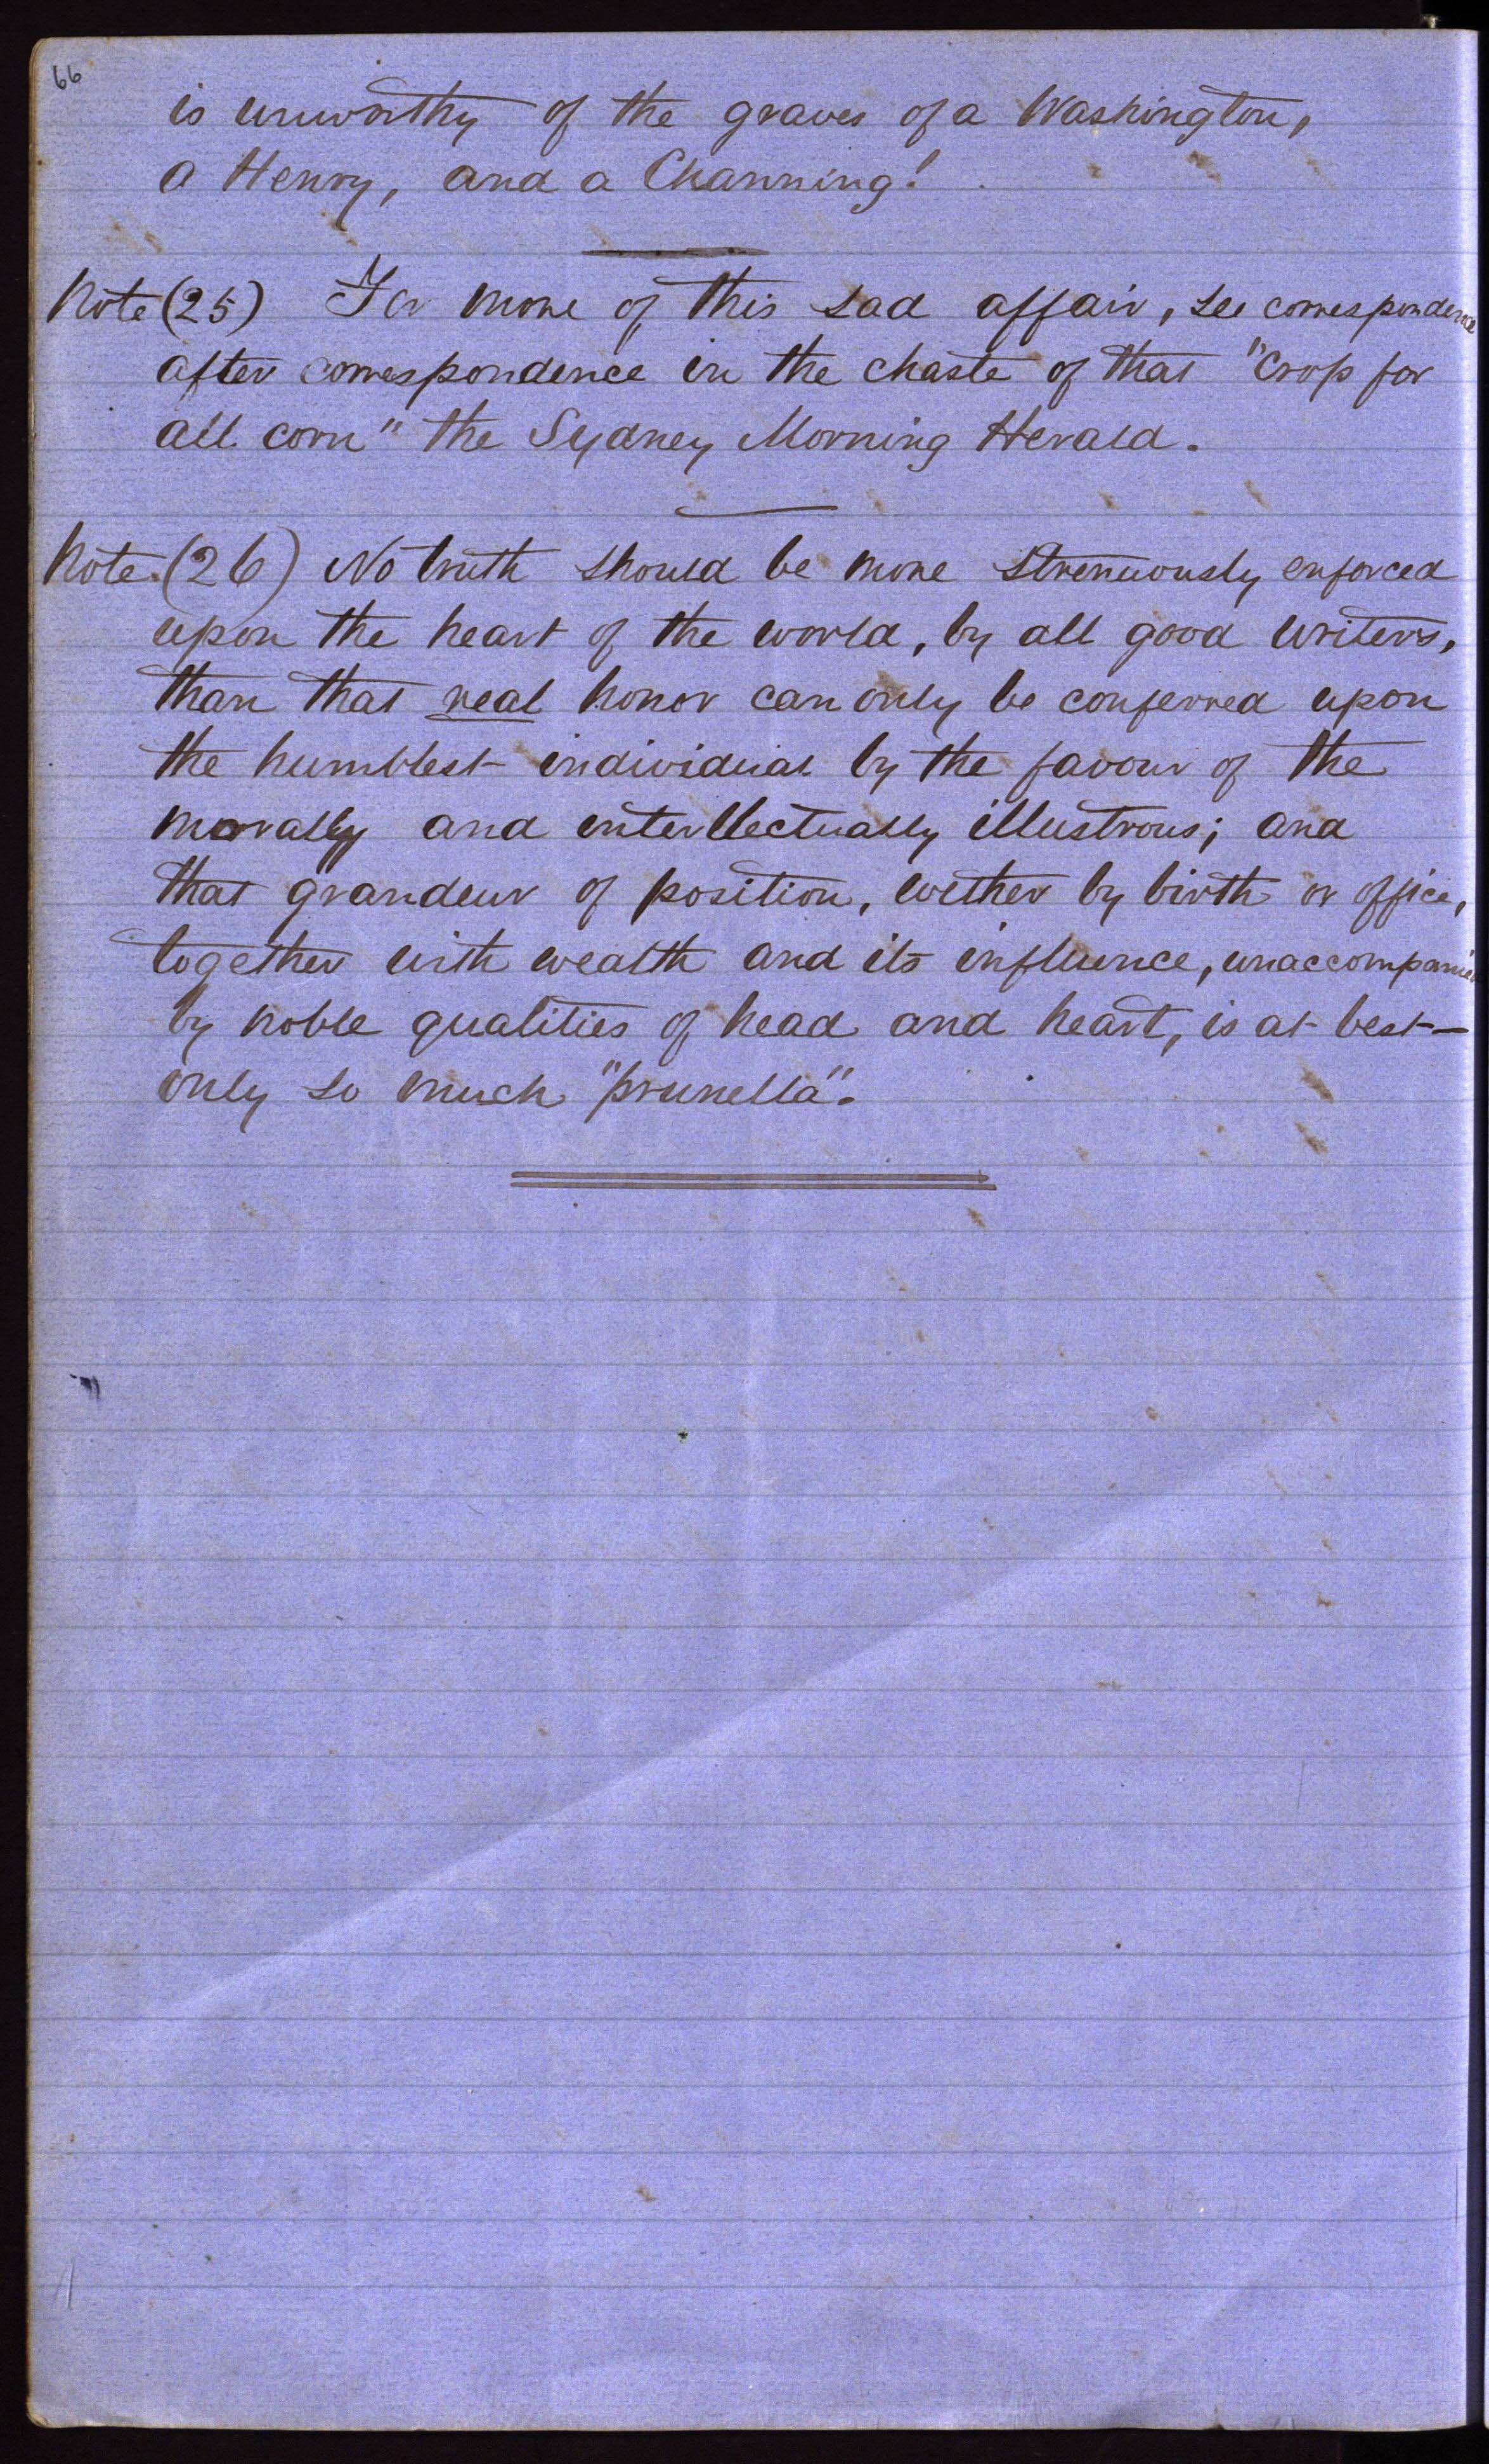 66
is unworthy of the graves of a Washington,
a Henry, and a Channing!
Note (25) For more of this sad affair, see correspondence
after correspondence in the chaste of that "Crop for
all corn" the Sydney Morning Herald.
Note (26) No truth should be more strenuously enforced
upon the heart of the world, by all good writers,
than that real honor can only be conferred upon
the humblest individual by the favour of the
morally and intellectually illustrous; and
that grandeur of position, wether by birth or office,
together with wealth and its influence, unaccompanied
by noble qualities of head and heart, is at best—
only so much "prunella".